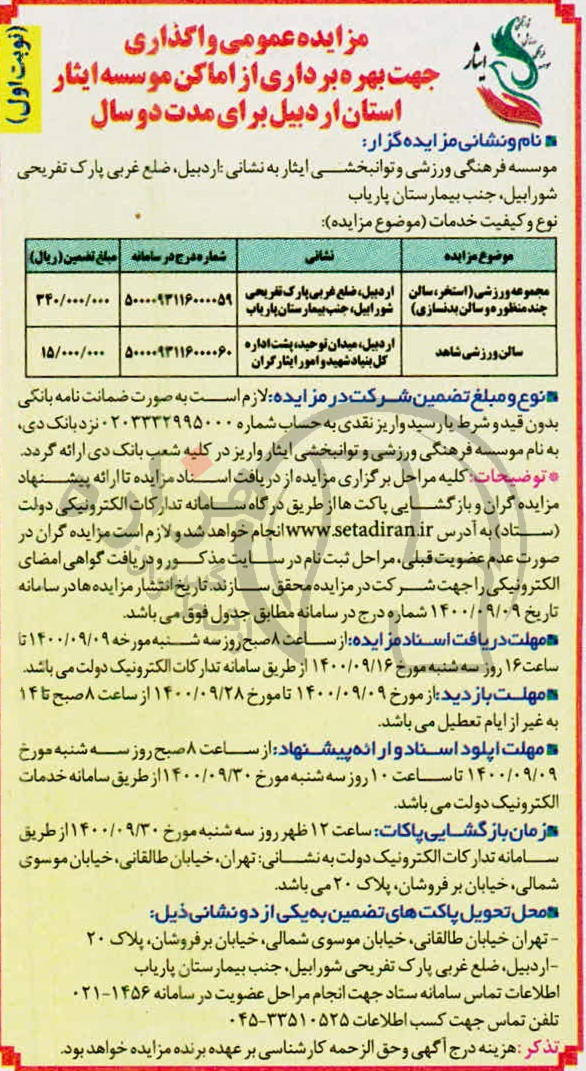 (نوبت اول)
ایثار
مزایده عمومی واگذاری
جهت بهره برداری از اماکن موسسه ایثار
استان اردبیل برای مدت دو سال
نام و نشانی مزایده گزار:
موسسه فرهنگی ورزشی و توانبخشی ایثار به نشانی :اردبیل، ضلع غربی پارک تفریحی
شورابیل، جنب بیمارستان پاریاب
نوع و کیفیت خدمات (موضوع مزایده):
موضوع مزایده	نشانی	شماره درج در سامانه	مبلغ تضمین (ریال)
مجموعه ورزشی (استخر، سالن	اردبیل، ضلع غربی پارک تفریحی	۵۰۰۰۰۹۳۱۱۶۰۰۰۰۵۹	۳۴۰/۰۰۰/۰۰۰
چند منظوره و سالن بدنسازی)	شورابیل، جنب بیمارستان پاریاب
سالن ورزشی شاهد	اردبیل، میدان توحید، پشت اداره	۵۰۰۰۰۹۳۱۱۶۰۰۰۰۶۰	۱۵/۰۰۰/۰۰۰
کل بنیاد شهید و امور ایثارگران
نوع و مبلغ تضمین شرکت در مزایده: لازم است به صورت ضمانت نامه بانکی
بدون قید و شرط یا رسید واریز نقدی به حساب شماره ۰۲۰۳۳۳۲۹۹۵۰۰۰ نزد بانک دی،
به نام موسسه فرهنگی ورزشی و توانبخشی ایثار واریز در کلیه شعب بانک دی ارائه گردد.
*توضیحات: کلیه مراحل برگزاری مزایده از دریافت اسناد مزایده تا ارائه پیشنهاد
مزایده گران و بازگشایی پاکت ها از طریق درگاه سامانه تدارکات الکترونیکی دولت
(ستاد) به آدرس www.setadiran.ir انجام خواهد شد و لازم است مزایده گران در
صورت عدم عضویت قبلی، مراحل ثبت نام در سایت مذکور و دریافت گواهی امضای
الکترونیکی را جهت شرکت در مزایده محقق سازند. تاریخ انتشار مزایده ها در سامانه
تاریخ ۱۴۰۰/۰۹/۰۹ شماره درج در سامانه مطابق جدول فوق می باشد.
مهلت دریافت اسناد مزایده: از ساعت ۸ صبح روز سه شنبه مورخه ۱۴۰۰/۰۹/۰۹ تا
ساعت ۱۶ روز سه شنبه مورخ ۱۴۰۰/۰۹/۱۶ از طریق سامانه تدارکات الکترونیک دولت می باشد.
مهلت بازدید: از مورخ ۱۴۰۰/۰۹/۰۹ تا مورخ ۱۴۰۰/۰۹/۲۸ از ساعت ۸ صبح تا ۱۴
به غیر از ایام تعطیل می باشد.
مهلت اپلود اسناد و ارائه پیشنهاد: از ساعت ۸ صبح روز سه شنبه مورخ
۱۴۰۰/۰۹/۰۹ تا ساعت ۱۰ روز سه شنبه مورخ ۱۴۰۰/۰۹/۳۰ از طریق سامانه خدمات
الکترونیک دولت می باشد.
زمان بازگشایی پاکات: ساعت ۱۲ ظهر روز سه شنبه مورخ ۱۴۰۰/۰۹/۳۰ از طریق
سامانه تدارکات الکترونیک دولت به نشانی: تهران، خیابان طالقانی، خیابان موسوی
شمالی، خیابان بر فروشان، پلاک ۲۰ می باشد.
محل تحویل پاکت های تضمین به یکی از دو نشانی ذیل:
- تهران خیابان طالقانی، خیابان موسوی شمالی، خیابان بر فروشان، پلاک ۲۰
-اردبیل، ضلع غربی پارک تفریحی شورابیل، جنب بیمارستان پاریاب
اطلاعات تماس سامانه ستاد جهت انجام مراحل عضویت در سامانه ۱۴۵۶-۰۲۱
تلفن تماس جهت کسب اطلاعات ۳۳۵۱۰۵۲۵-۰۴۵
تذکر :هزینه درج آگهی وحق الزحمه کارشناسی بر عهده برنده مزایده خواهد بود.